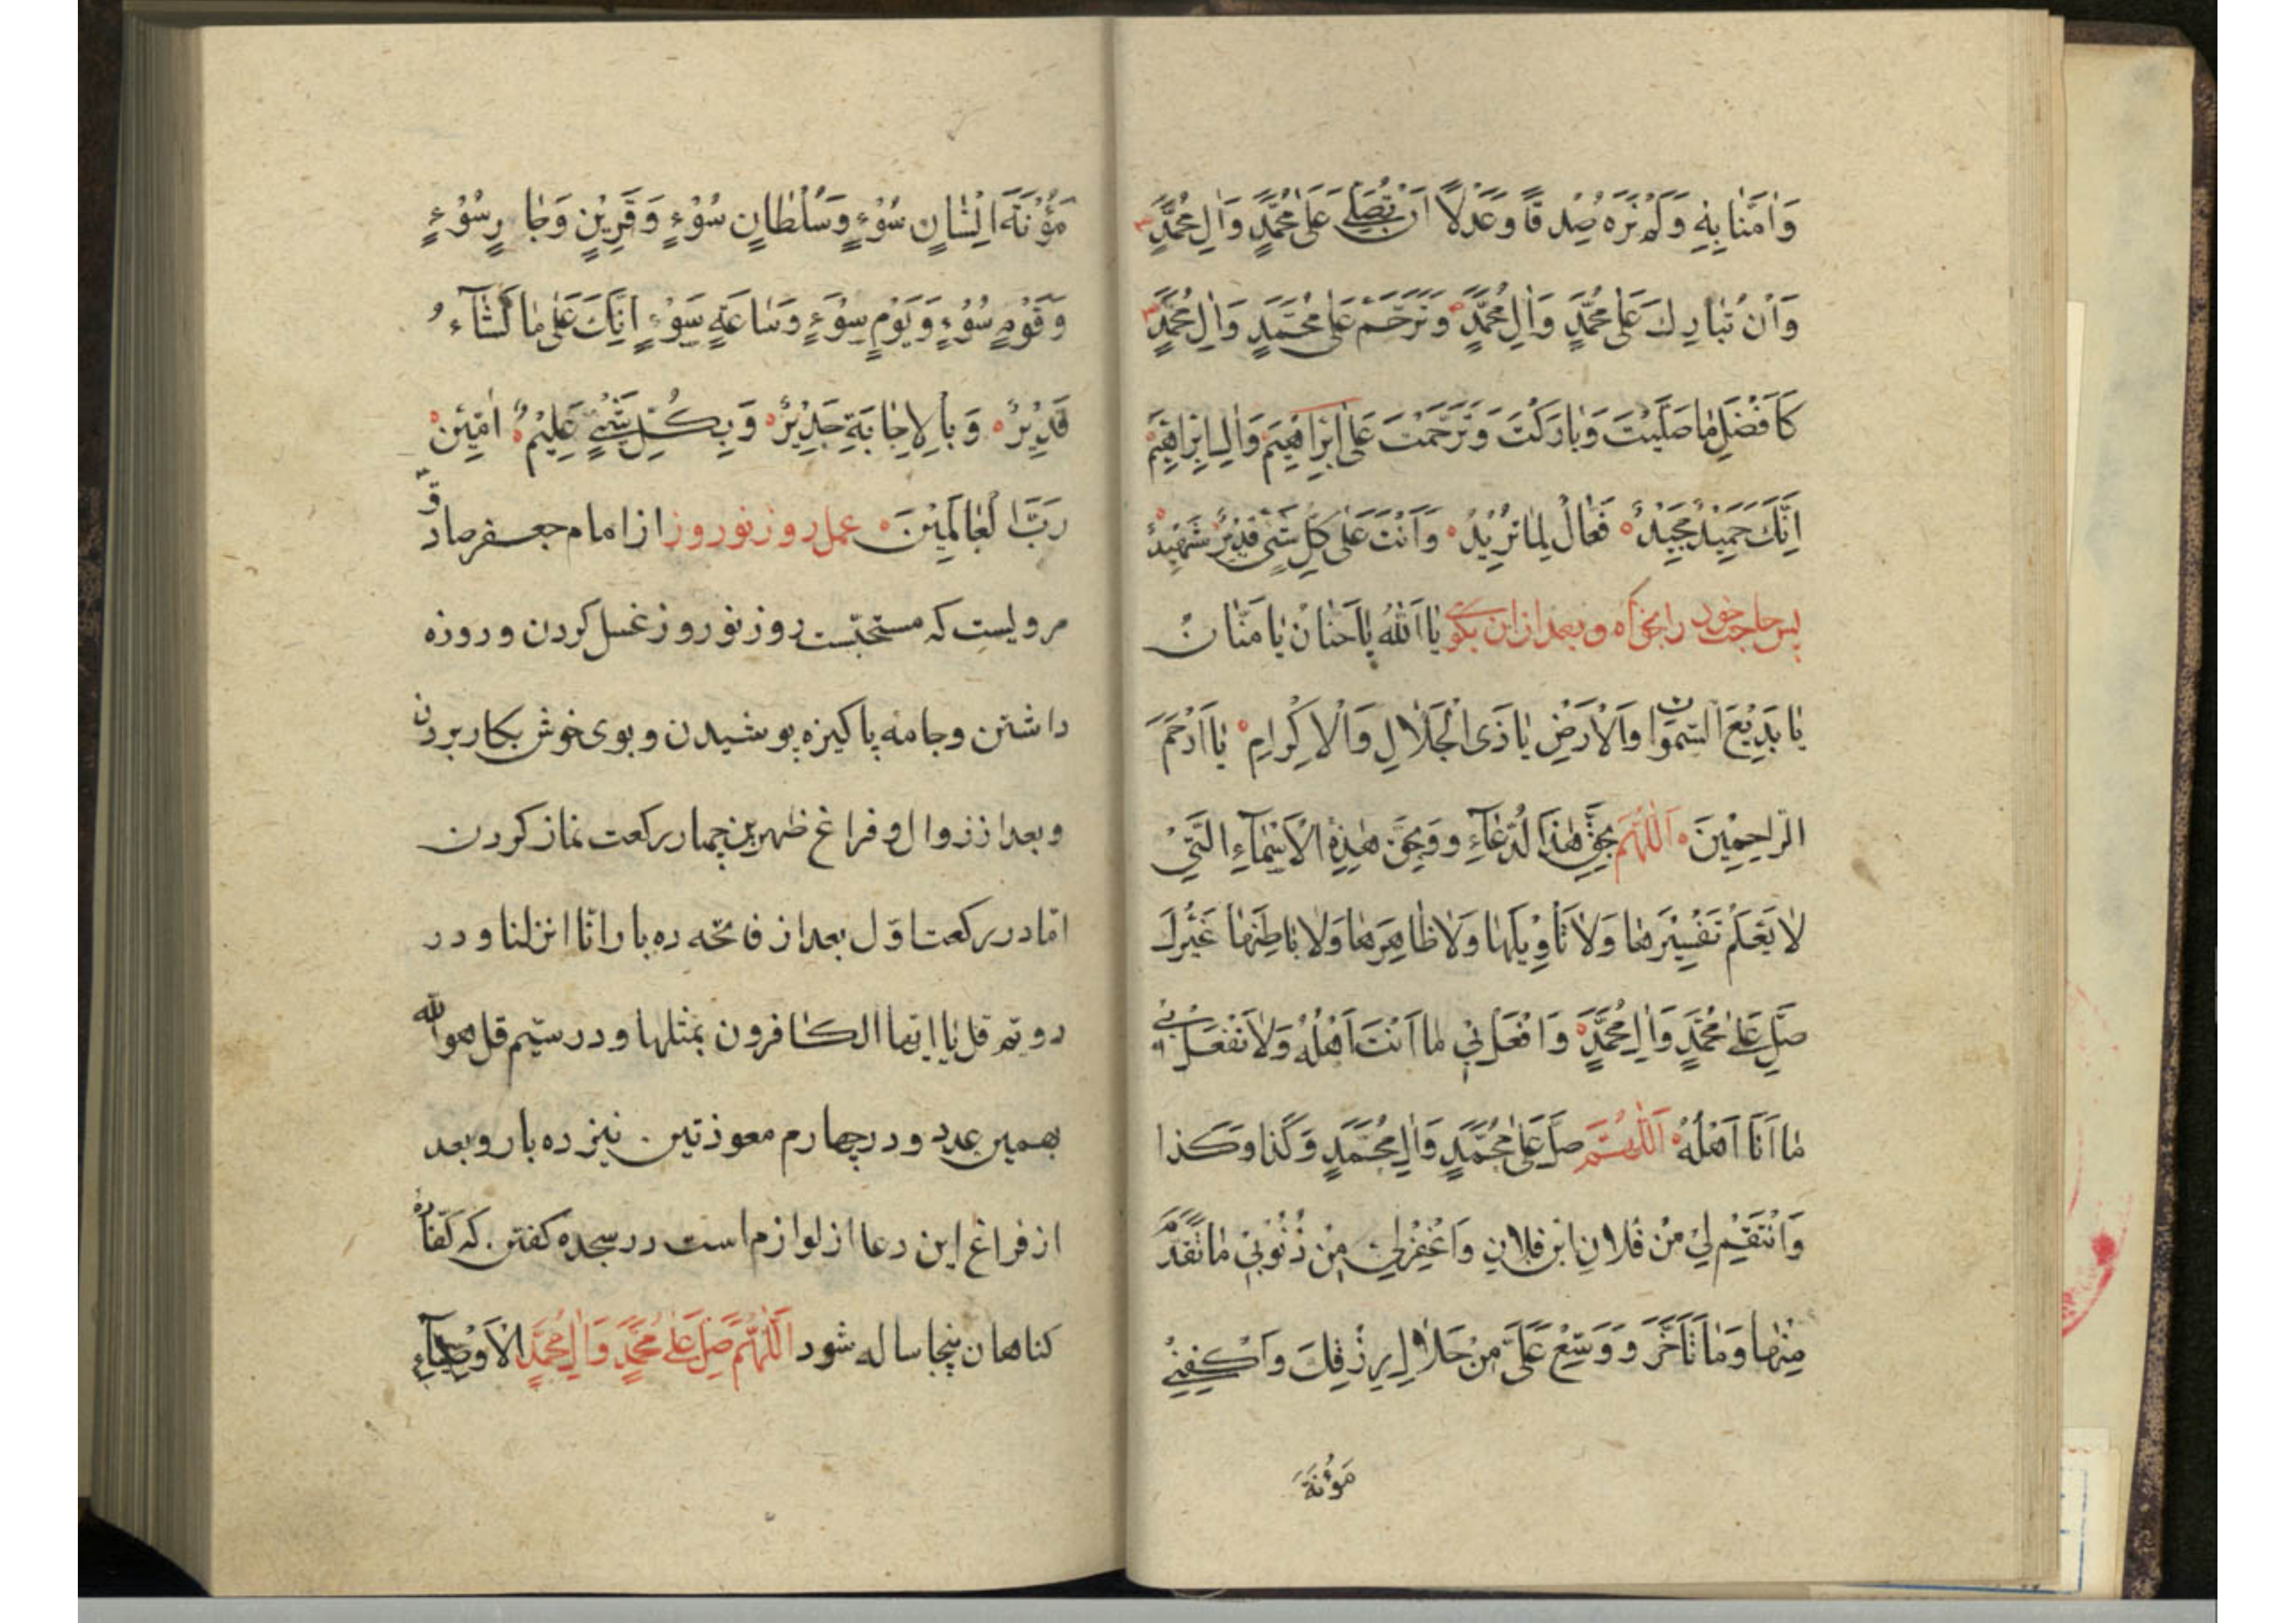 وَاٰمَنَّا بِهِ وَلَمْ نَرَه صِدْقًا وَعَدْلًا اَنْ تُصَلِّيَ عَلٰى مُحَمَّدٍ وَاٰلِ مُحَمَّدٍ
وَاَنْ تُبَارِكَ عَلٰى مُحَمَّدٍ وَاٰلِ مُحَمَّدٍ وَتَرَحَّمَ عَلٰى مُحَمَّدٍ وَاٰلِ مُحَمَّدٍ
كَاَفْضَلِ مٰا صَلَّيْتَ وَبٰارَكْتَ وَتَرَحَّمْتَ عَلٰى اِبْرٰاهِيمَ وَاٰلِ اِبْرٰاهِيمَ
اِنَّكَ حَمِيْدٌ مَجِيْدٌ فَعّٰالٌ لِمٰا تُرِيْدُ وَاَنْتَ عَلٰى كُلِّ شَيْءٍ قَدِيْرٌ شَهِيْدٌ
پس حاجت خود را بخواه و بعد از ان بگوى يٰا اَللهُ يٰا حَنّٰانُ يٰا مَنّٰانُ
يٰا بَدِيْعَ السَّمٰوٰاتِ وَالْاَرْضِ يٰا ذَى الْجَلٰالِ وَالْاِكْرٰامِ يٰا اَرْحَمَ
الرّٰاحِمِيْنَ اَللّٰهُمَّ بِحَقِّ هٰذَا الدُّعٰٓاءِ وَ وَبِحَقِّ هٰذِهِ الْاَسْمٰٓاءِ الَّتِيْ
لٰا يَعْلَمُ تَفْسِيْرَهٰا وَلٰا تَاْوِيْلَهٰا وَلٰا ظٰاهِرَهٰا وَلٰا بٰاطِنَهٰا غَيْرُكَ
صَلِّ عَلٰى مُحَمَّدٍ وَاٰلِ مُحَمَّدٍ وَافْعَلْ بِيْ مٰا اَنْتَ اَهْلُهُ وَلٰا تَفْعَلْ بِيْ
مٰا اَنَا اَهْلُهُ اَللّٰهُمَّ صَلِّ عَلٰى مُحَمَّدٍ وَاٰلِ مُحَمَّدٍ وَكَذٰا وَكَذا
وَانْتَقِمْ لِيْ مِنْ فُلٰانِ ابْنِ فُلٰانٍ وَاغْفِرْ لِيْ مِنْ ذُنُوْبِيْ مٰا تَقَدَّمَ
مِنْهٰا وَمٰا تَاَخَّرَ وَ وَسِّعْ عَلَيَّ مِنْ حَلٰالِ رِزْقِكَ وَاكْفِنِيْ
مَؤُنَةَ
مَؤُنَةَ اِنْسٰانِ سُوْءٍ وَسُلْطٰانٍ سُوْءٍ وَقَرِيْنٍ وَجٰارِ سُوْءٍ
وَقَوْمِ سُوْءٍ وَيَوْمِ سُوْءٍ وَسٰاعَةِ سَوْءٍ اِنَّكَ عَلٰى مٰا تَشٰٓاءُ
قَدِيْرٌ وَبِالْاِجٰابَةِ جَدِيْرٌ وَبِكُلِّ شَيْءٍ عَلِيْمٌ اٰمِيْنَ
رَبَّ الْعٰالَمِيْنَ عمل روز نوروز از امام جعفر صادق
مرويست كه مستحبّست روز نوروز غسل كردن و روزه
داشتن و جامه پاكيزه پوشيدن و بوى خوش بكار بردن
و بعد از زوال و فراغ ظهرين چهار ركعت نماز كردن
امّا در ركعت اوّل بعد از فاتحه ده بار انّا انزلنا و در
دويّم قل يا ايّها الكافرون بمثلها و در سيّم قل هو الله
بهمين عدد و در چهارم معوذتين نيز ده بار و بعد
از فراغ اين دعا از لوازم است در سجده كفتن كه كفّاره
كناهان پنجا ساله شود اَللّٰهُمَّ صَلِّ عَلٰى مُحَمَّدٍ وَاٰلِ مُحَمَّدٍ الْاَوْصِيٰٓاءِ